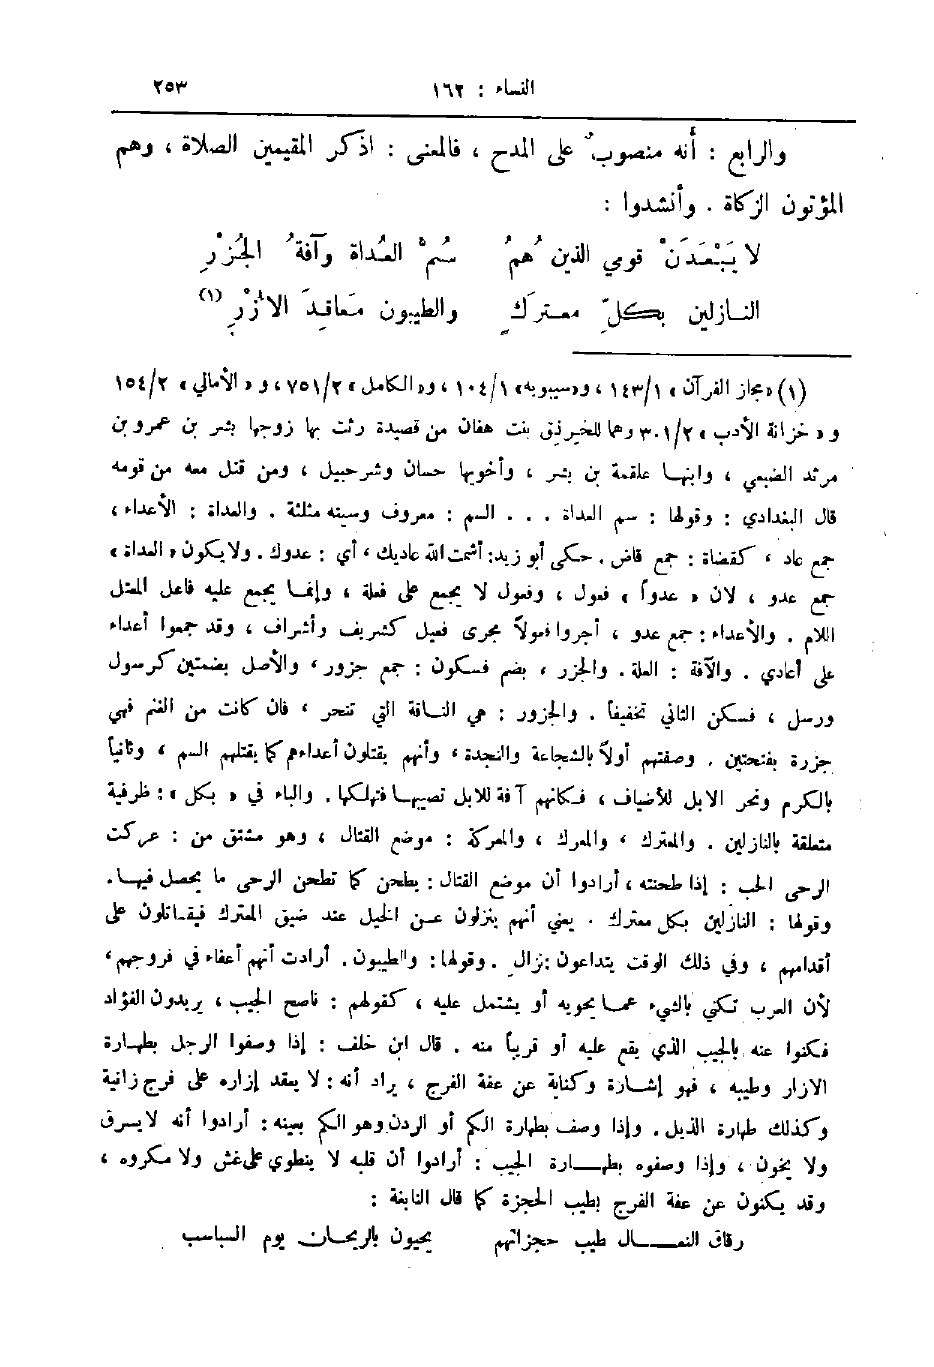 النساء : ١٦٢ ٢٥٣
والرابع : أنه منصوبٌ على المدح ، فالمعنى : اذكر المقيمين الصلاة ، وهم
المؤتون الزكاة . وأنشدوا :
لا يَبْعَدَنْ قومي الذين هُمُ سُمُّ العُداة وآفةُ الجُزْرِ
النازلين بكلِّ معتركٍ والطيبون مَعاقِدَ الأُزْرِ (١)
(١) «مجاز القرآن» ١٤٣/١ ، و«سيبويه» ١٠٤/١ ، و«الكامل» ٧٥١/٢ ، و«الأمالي» ١٥٤/٢
و«خزانة الأدب» ٣٠١/٢ وهما للخِرنِق بنت هفان من قصيدة رثت بها زوجها بشر بن عمرو بن
مرثد الضبعي ، وابنها علقمة بن بشر ، وأخويها حسان وشرحبيل ، ومن قتل معه من قومه
قال البغدادي : وقولها : سم العداة . . . السم : معروف وسينه مثلثة . والعداة : الأعداء ،
جمع عاد ، كقضاة : جمع قاض . حكى أبو زيد: أشمت الله عاديك ، أي : عدوك . ولا يكون «العداة»
جمع عدو ، لان «عدواً» فعول ، وفعول لا يجمع على فعلة ، وإنما يجمع عليه فاعل المعتل
اللام . والأعداء : جمع عدو ، أجروا فعولاً مجرى فعيل كشريف وأشراف ، وقد جمعوا أعداء
على أعادي . والآفة : العلة . والجزر ، بضم فسكون : جمع جزور ، والأصل بضمتين كرسول
ورسل ، فسكن الثاني تخفيفاً . والجزور : هي الناقة التي تنحر ، فان كانت من الغنم فهي
جزرة بفتحتين . وصفتهم أولاً بالشجاعة والنجدة ، وأنهم يقتلون أعداءهم كما يقتلهم السم ، وثانياً
بالكرم ونحر الابل للأضياف ، فكأنهم آفة للابل تصيبها فتهلكها . والباء في «بكل» : ظرفية
متعلقة بالنازلين . والمعترك ، والمعرك ، والمعركة : موضع القتال ، وهو مشتق من : عركت
الرحى الحب : إذا طحنته ، أرادوا أن موضع القتال : يطحن كما تطحن الرحى ما يحصل فيها .
وقولها : النازلين بكل معترك . يعني أنهم ينزلون عن الخيل عند ضيق المعترك فيقاتلون على
أقدامهم ، وفي ذلك الوقت يتداعون :نزالِ . وقولها : والطيبون . أرادت أنهم أعفاء في فروجهم ،
لأن العرب تكني بالشيء عما يحويه أو يشتمل عليه ، كقولهم : ناصح الجيب ، يريدون الفؤاد
فكنوا عنه بالجيب الذي يقع عليه أو قريباً منه . قال ابن خلف : إذا وصفوا الرجل بطهارة
الازار وطيبه ، فهو إشارة وكناية عن عفة الفرج ، يراد أنه : لا يعقد إزاره على فرج زانية
وكذلك طهارة الذيل . وإذا وصف بطهارة الكم أو الردن وهو الكم بعينه : أرادوا أنه لا يسرق
ولا يخون ، وإذا وصفوه بطهارة الجيب : أرادوا أن قلبه لا ينطوي على غش ولا مكروه ،
وقد يكنون عن عفة الفرج بطيب الحجزة كما قال النابغة :
رقاق النعال طيب حجزاتهم يحيون بالريحان يوم السباسب